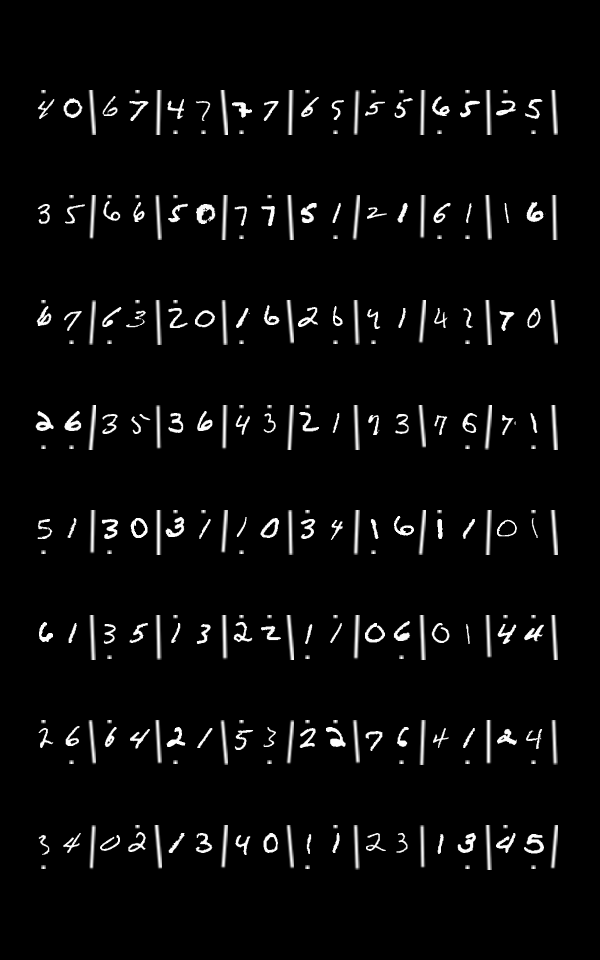 4 0 | 6 7 | 4 7 | 7 7 | 6 5 | 5 5 | 6 5 | 2 5 |
3 5 | 6 6 | 5 0 | 7 7 | 5 1 | 2 1 | 6 1 | 1 6 |
6 7 | 6 3 | 2 0 | 1 6 | 2 6 | 4 1 | 4 2 | 7 0 |
2 6 | 3 5 | 3 6 | 4 3 | 2 1 | 7 3 | 7 6 | 7 1 |
5 1 | 3 0 | 3 1 | 1 0 | 3 4 | 1 6 | 1 1 | 0 1 |
6 1 | 3 5 | 1 3 | 2 2 | 1 1 | 0 6 | 0 1 | 4 4 |
2 6 | 6 4 | 2 1 | 5 3 | 2 2 | 7 6 | 4 1 | 2 4 |
3 4 | 0 2 | 1 3 | 4 0 | 1 1 | 2 3 | 1 3 | 4 5 |